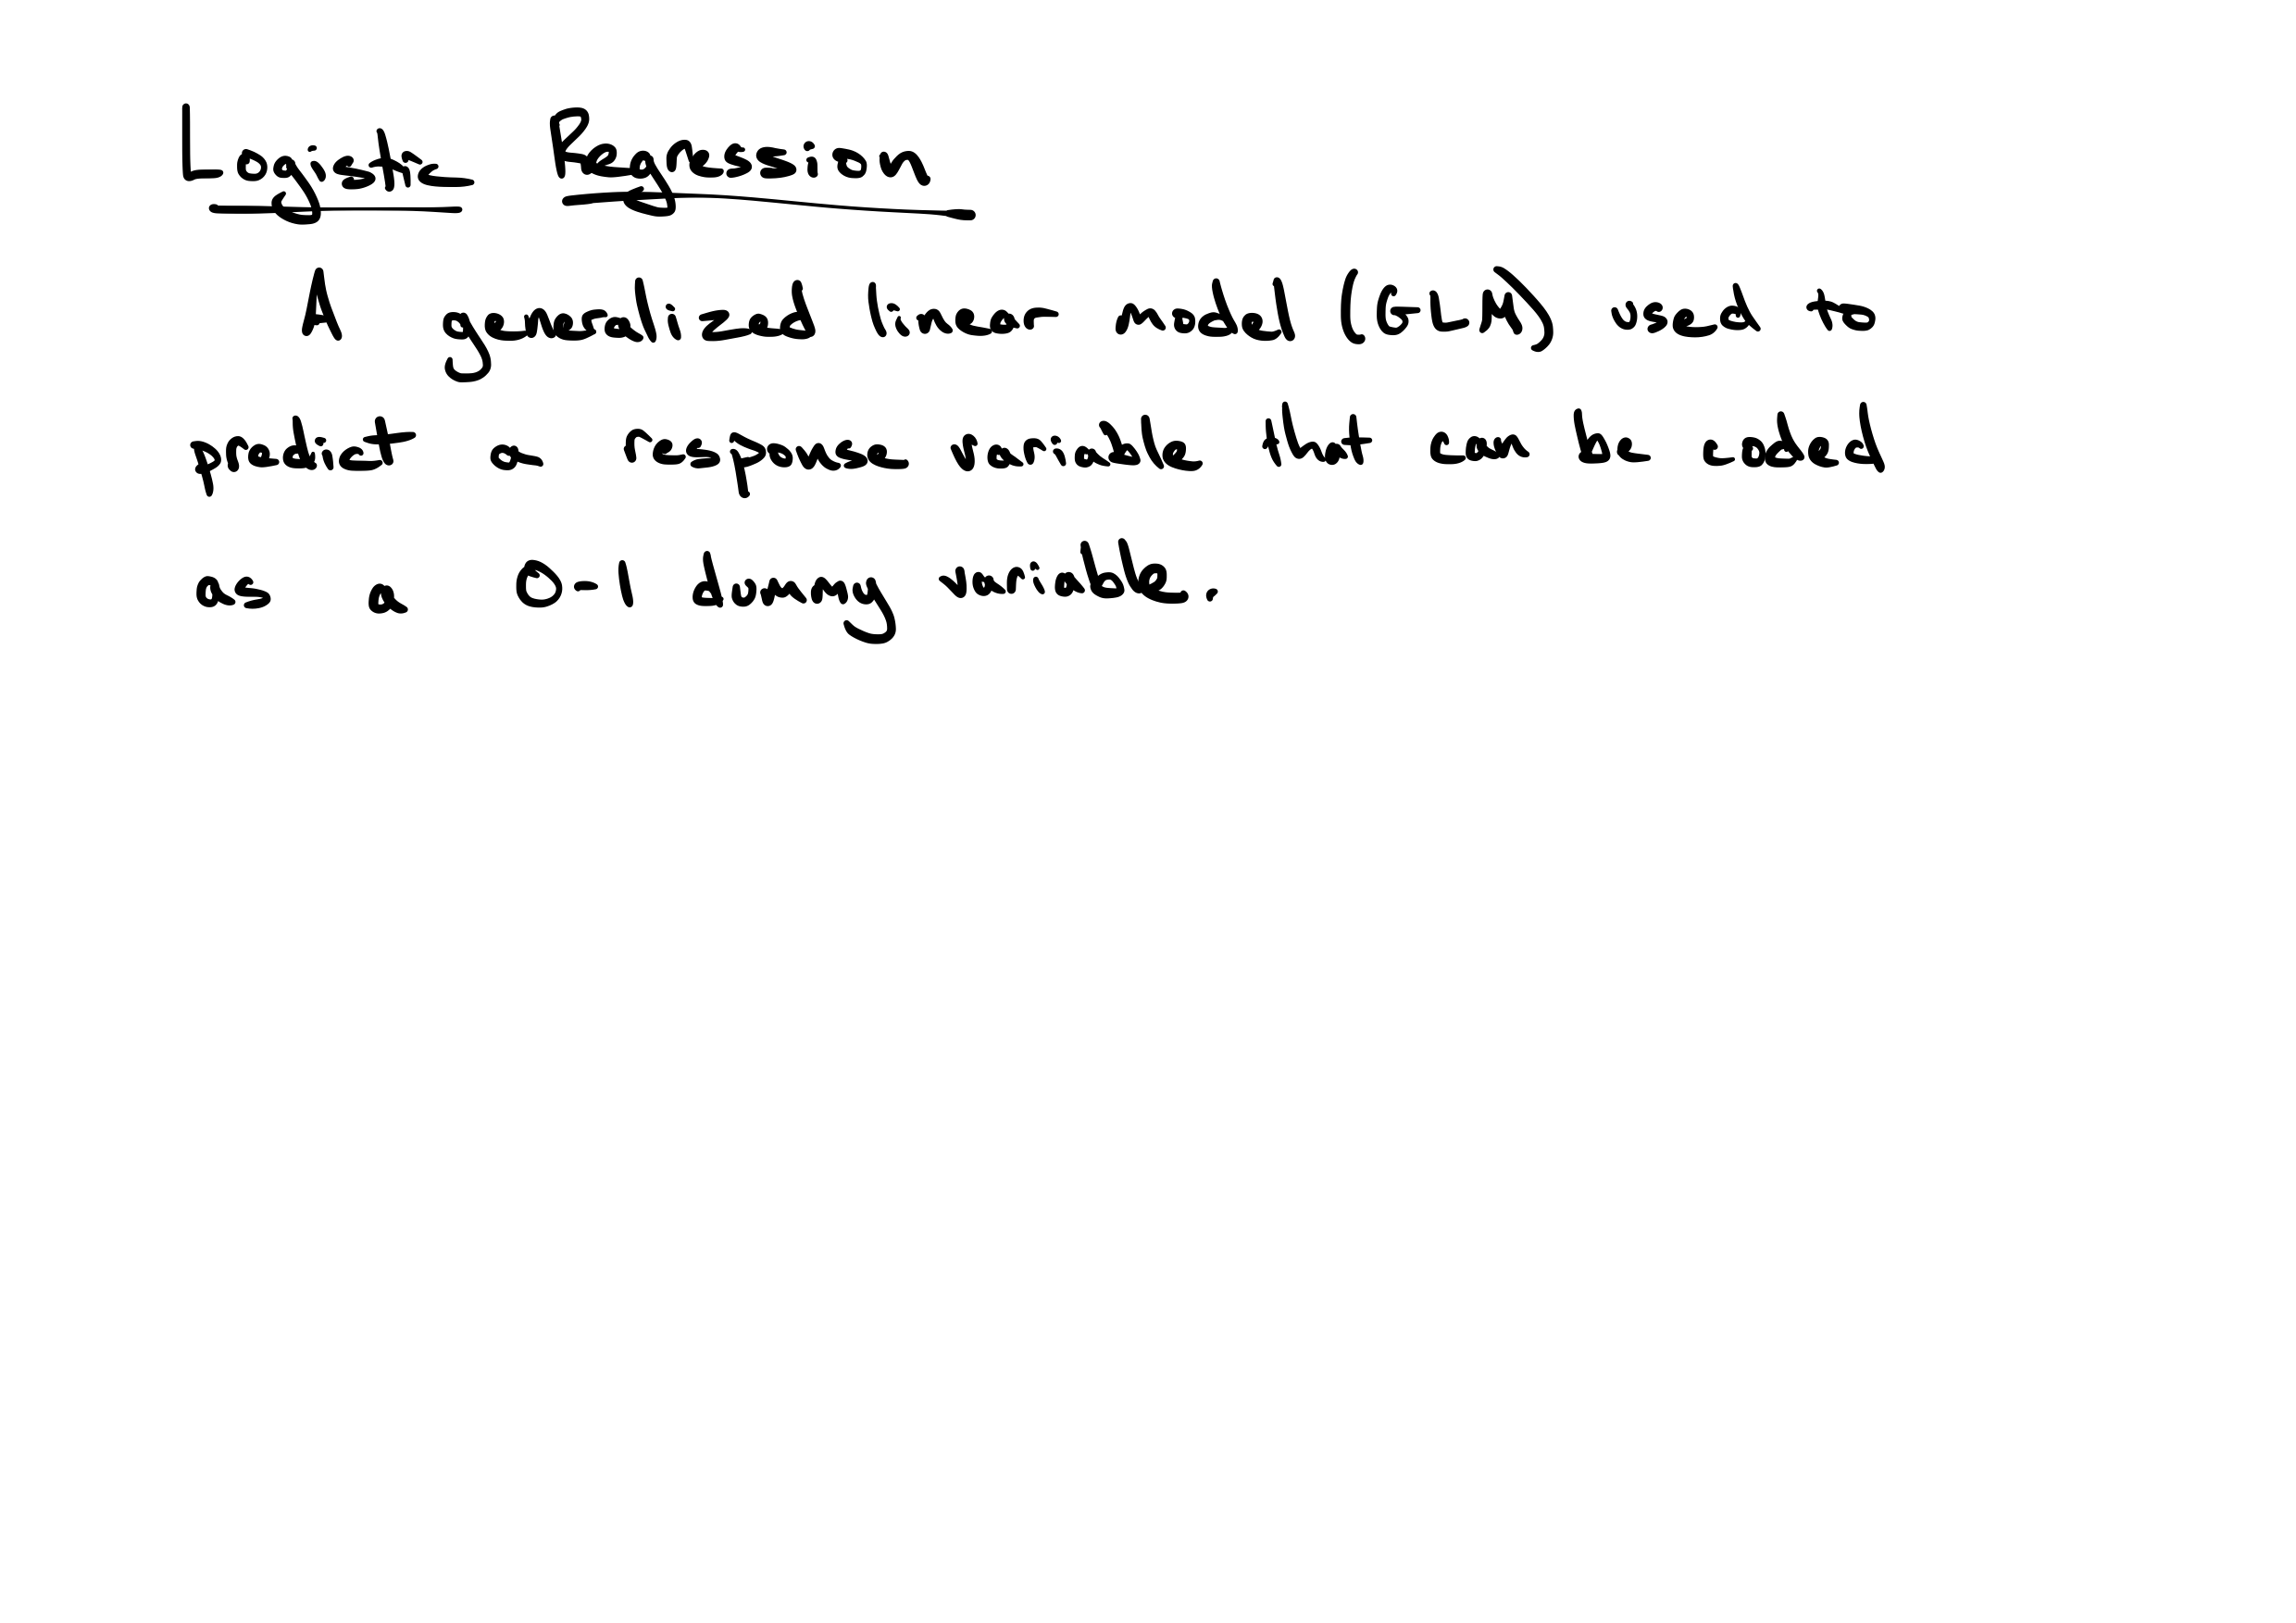 Logistic Regression
A generalized linear model (GLM) used to
predict a response variable that can be coded
as a 0-1 dummy variable.